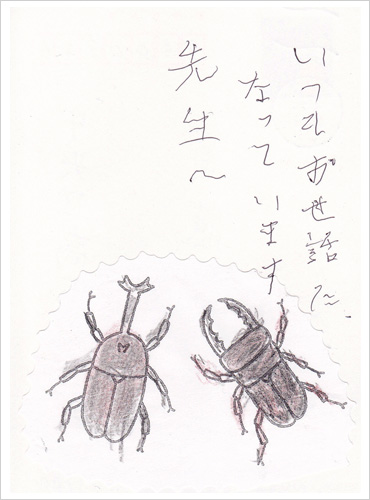 いつもお世話に
なっています
先生へ